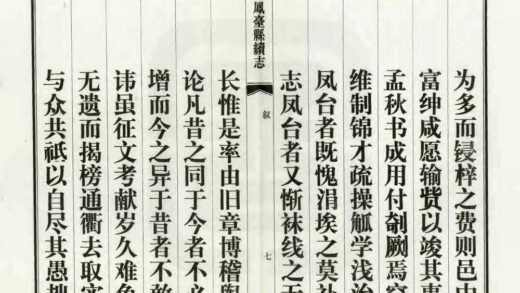 为多而锓梓之费则邑中
富绅咸愿输赀以竣其事
孟秋书成用付剞劂焉窃
维制锦才疏操觚学浅治
凤台者既愧涓埃之莫补
志凤台者又惭袜线之无
鳳臺縣續志
叙
七
长惟是率由旧章博稽舆
论凡昔之同于今者不必
增而今之异于昔者不敢
讳虽征文考献岁久难免
无遗而揭榜通衢去取实
与众共祇以自尽其愚拙